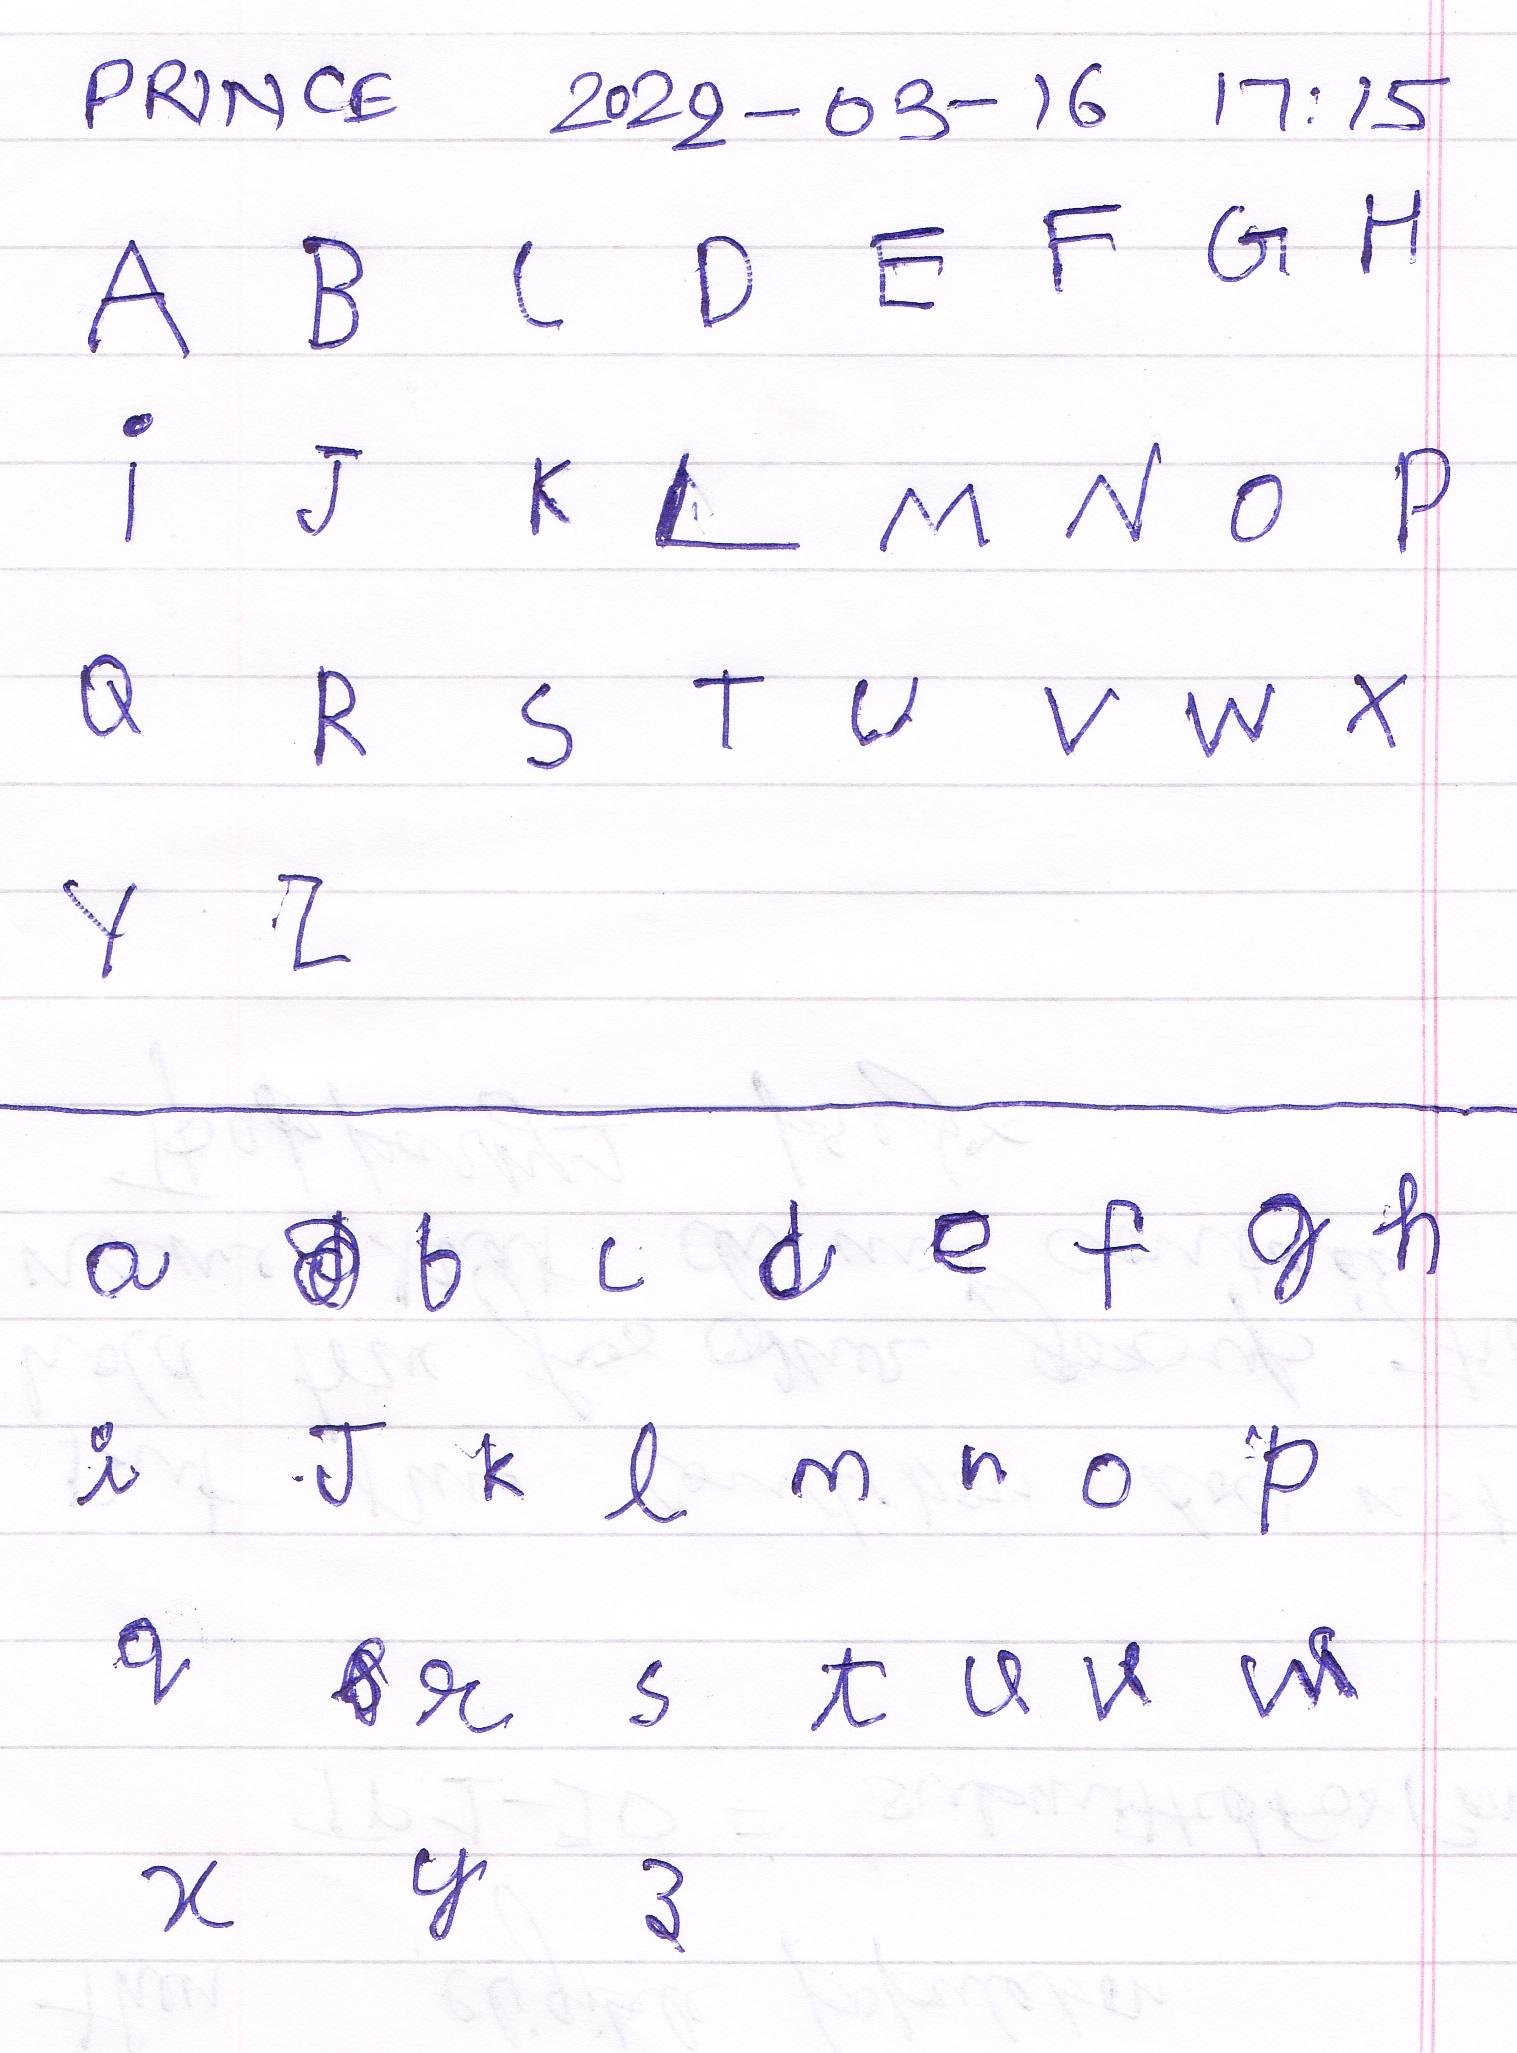 PRINCE 2022-03-16 17:15
A B C D E F G H
i J K L M N O P
Q R S T U V W X
Y Z
a b c d e f g h
i J k l m n o p
q r s t u v w
x y z